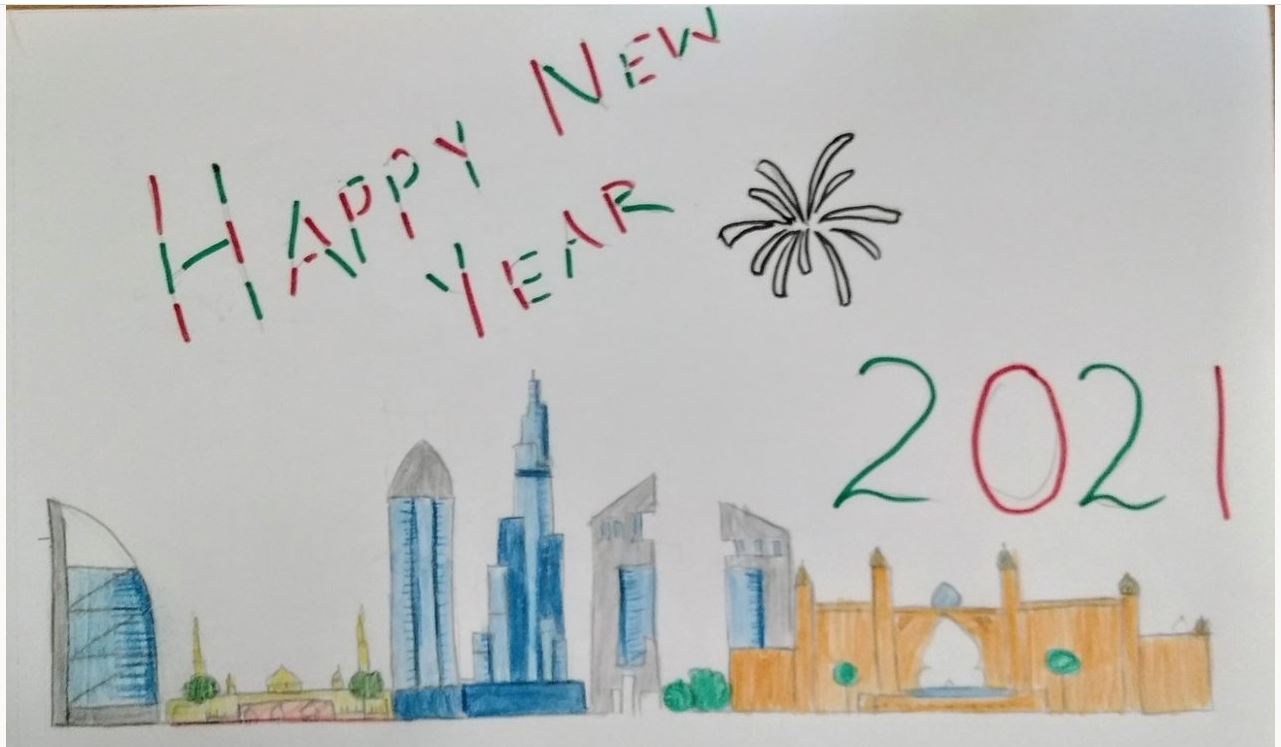 Happy New
Year
2021